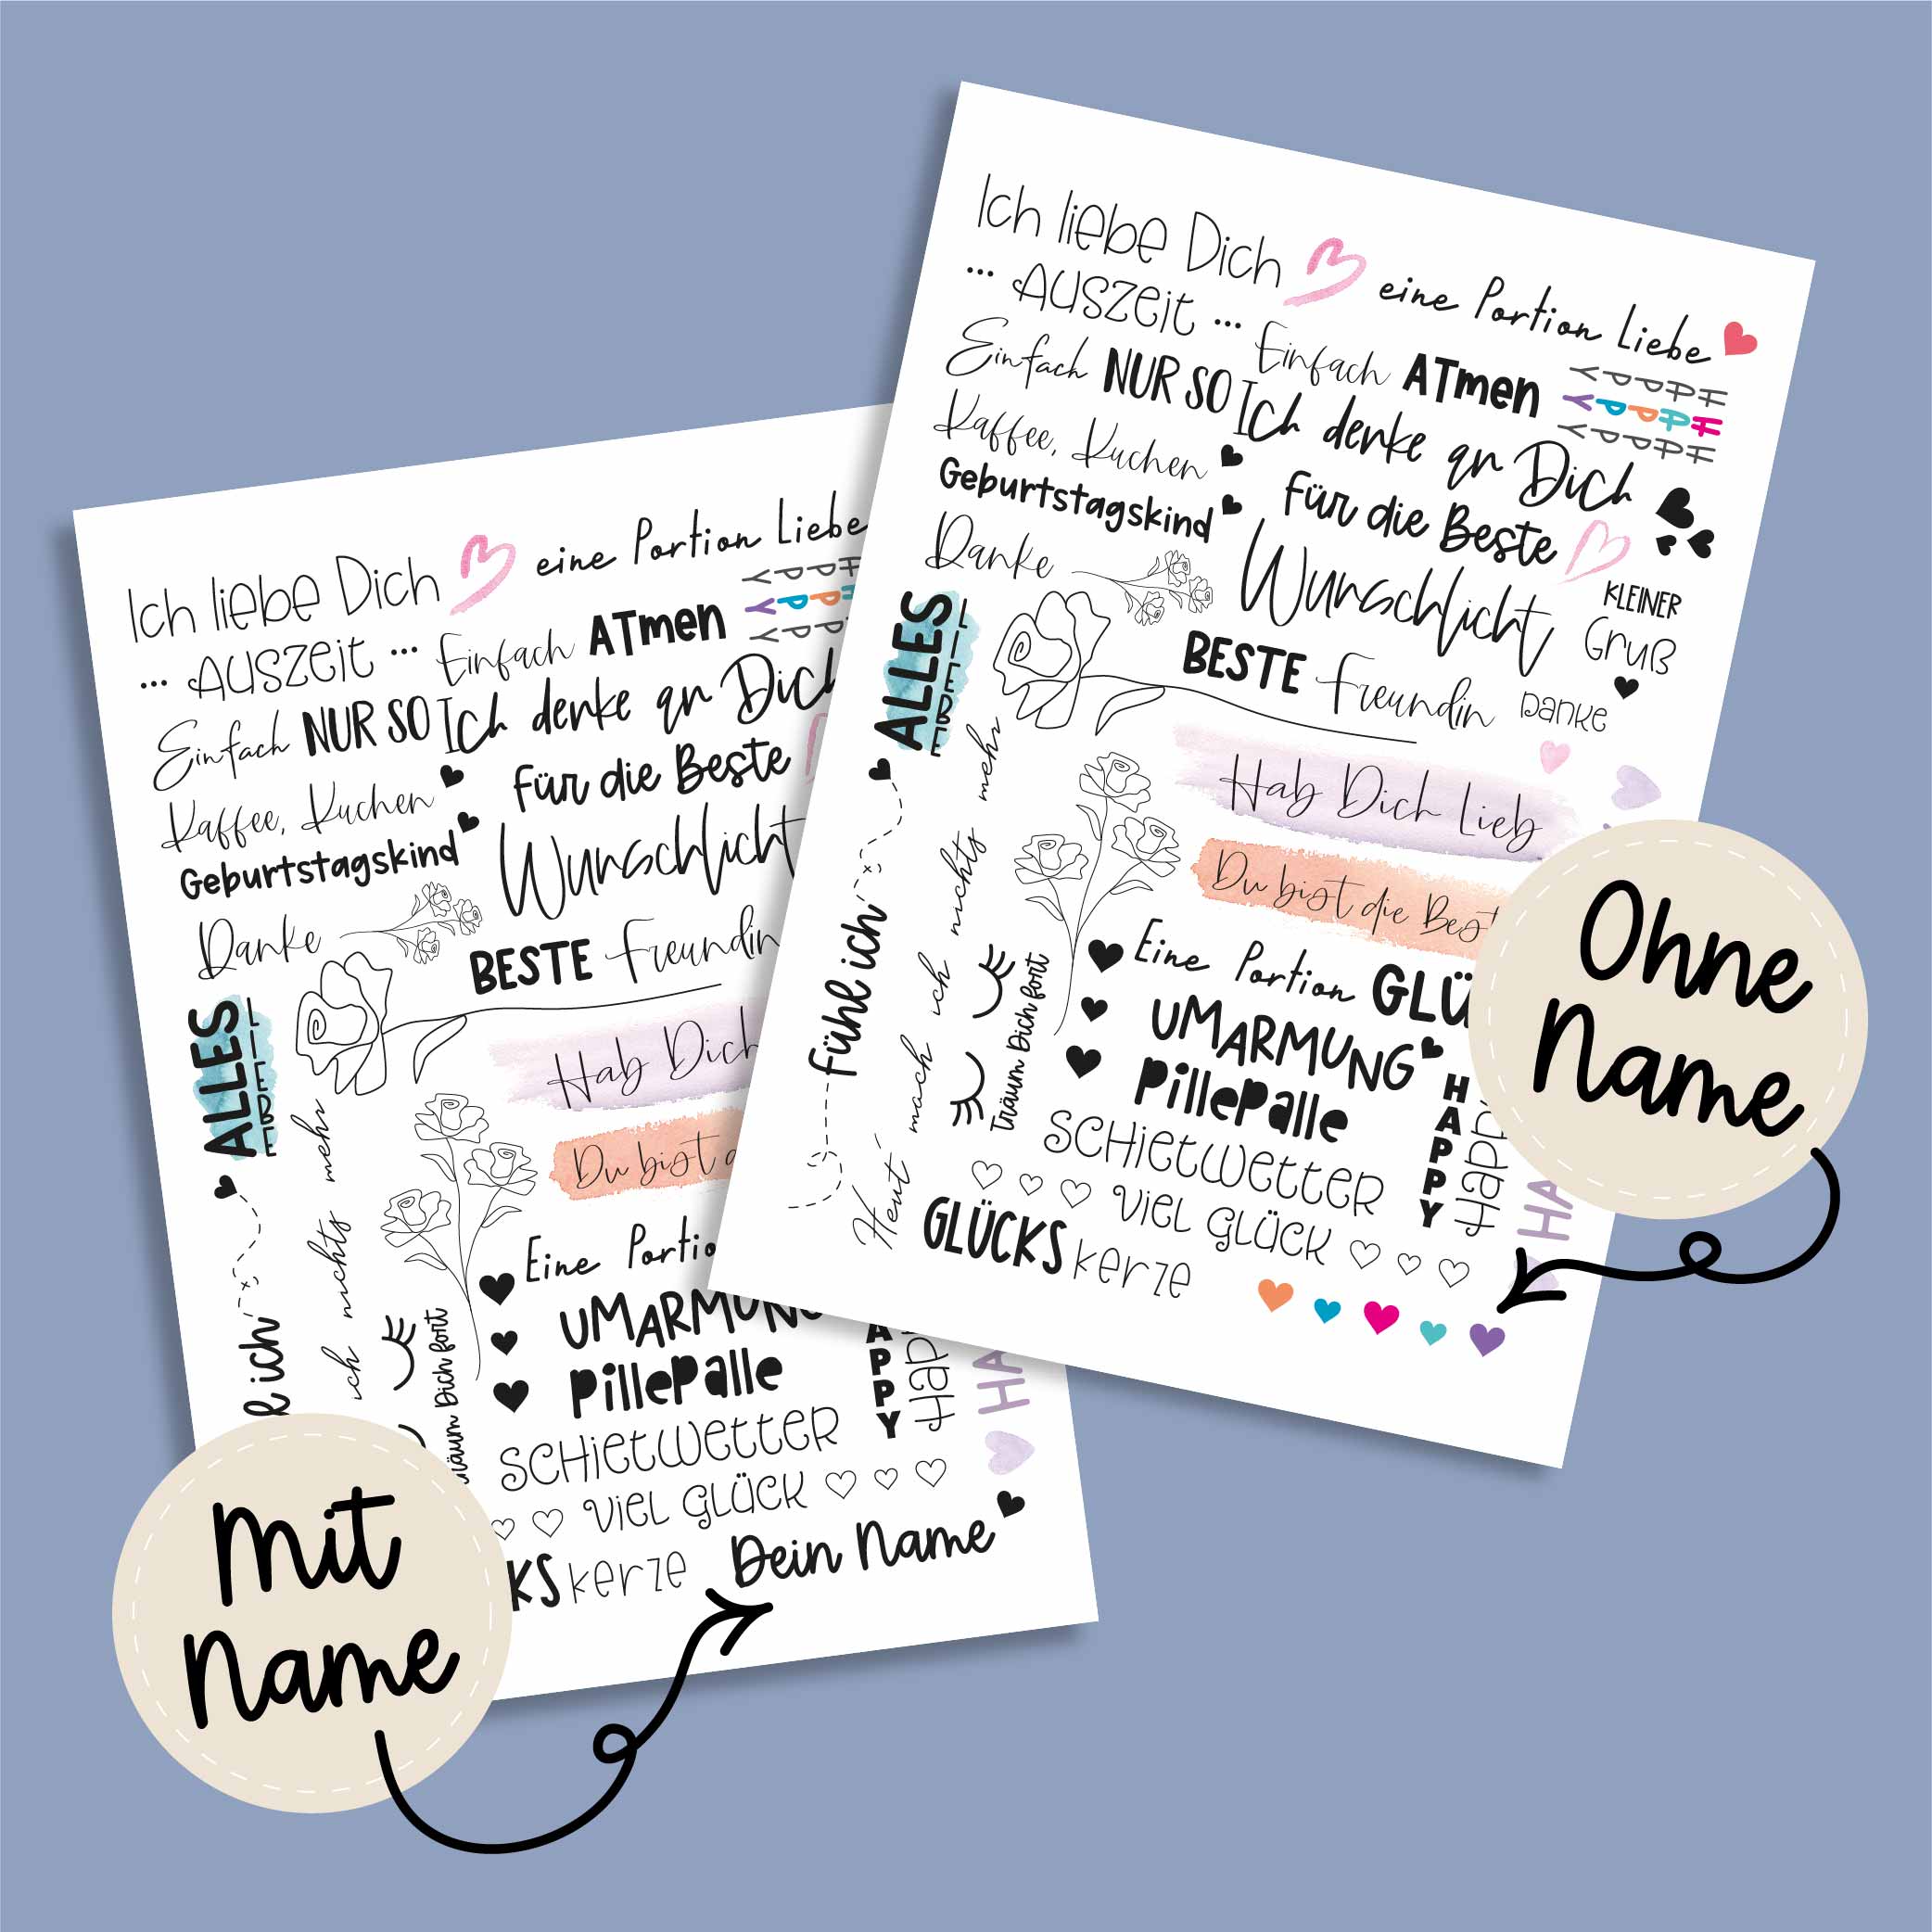 Ich liebe Dich
eine Portion Liebe
... Auszeit ...
Einfach ATmen
HAPPY
HAPPY
HAPPY
Einfach NUR SO
Ich denke an Dich
Kaffee, Kuchen
Geburtstagskind
Für die Beste
Danke
Wunschlicht
KLEINER
Gruß
BESTE Freundin
Danke
ALLES
LIEBE
Hab Dich Lieb
Du bist die Best
Fühl ich
Heut mach ich nichts mehr
Träum Dich fort
Eine Portion GLÜ
UMARMUNG
PillePalle
SCHietWetter
HAPPY
Happy
HA
Viel Glück
GLÜCKS kerze
Ohne
Name
Ich liebe Dich
eine Portion Liebe
... Auszeit ...
Einfach ATmen
Einfach NUR SO
Ich denke an Dich
Kaffee, Kuchen
Geburtstagskind
Für die Beste
Danke
Wunschlicht
BESTE Freundin
ALLES
LIEBE
Hab Dich
Du bist d
l ich
ich nichts mehr
räum Dich fort
Eine Portio
UMARMUNG
PillePalle
SCHietWetter
APPY
Happ
HA
Viel Glück
KS kerze
Dein Name
Mit
Name